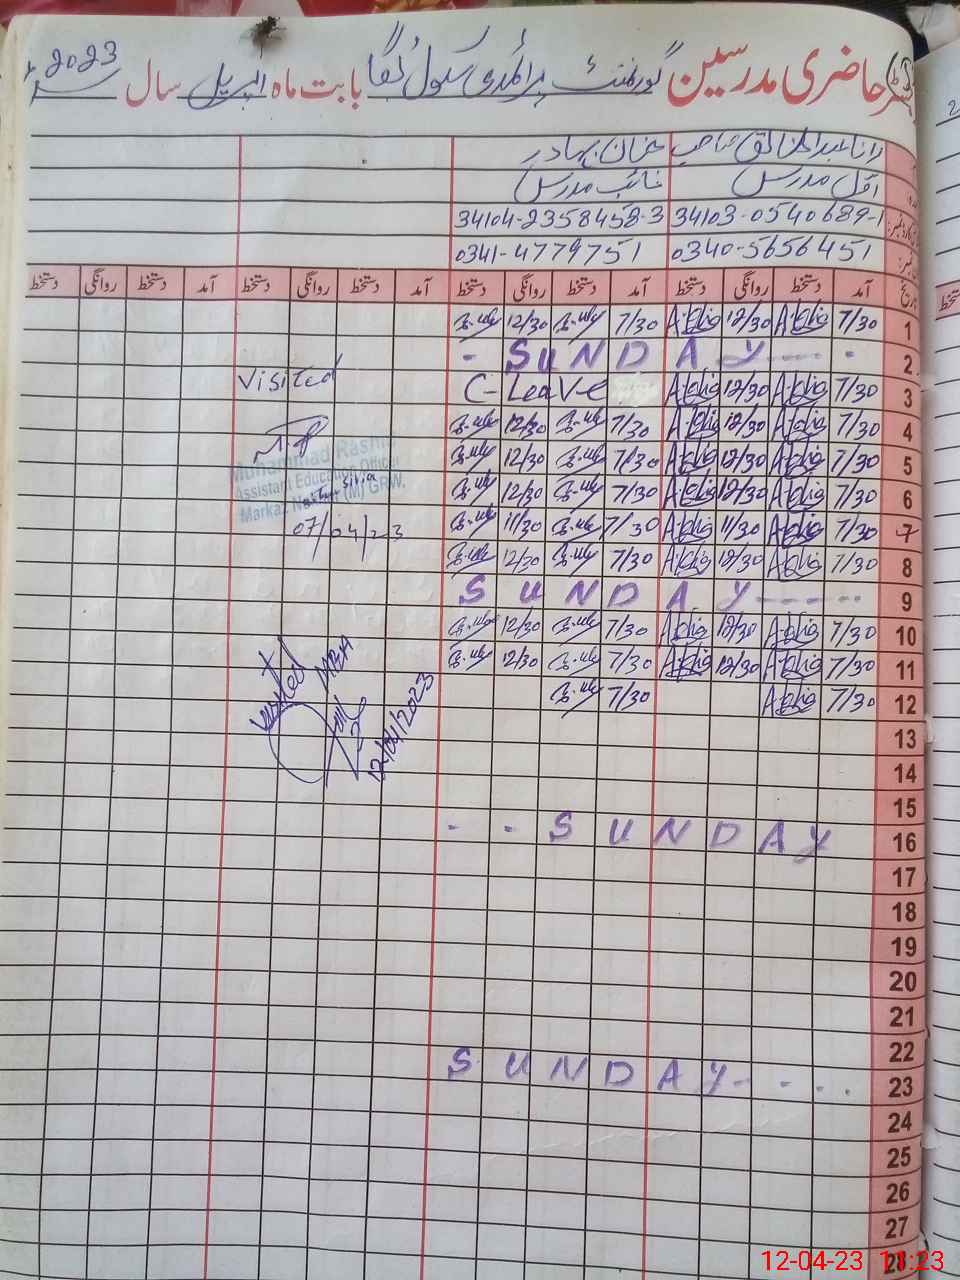 حاضری مدرسین گورنمنٹ پرائمری سکول بابت ماہ اپریل سال 2023
رانا عبدالخالق صاحب خان بہادر
اول مدرس نائب مدرس
34103-0540689-1 34104-2358458-3
0340-5656451 0341-4779751
آمد دستخط روانگی دستخط آمد دستخط روانگی دستخط آمد دستخط روانگی دستخط آمد دستخط روانگی دستخط
1 7/30 12/30 7/30 12/30
2 SUNDAY
3 7/30 12/30 C-Leave
Visited
4 7/30 12/30 7/30 12/30
5 7/30 12/30 7/30 12/30
Muhammad Rashid
Assistant Education Officer
Markaz (M) GRW.
6 7/30 12/30 7/30 12/30
7 7/30 11/30 7/30 11/30
07/04/23
8 7/30 12/30 7/30 12/30
9 SUNDAY
10 7/30 12/30 7/30 12/30
11 7/30 12/30 7/30 12/30
12 7/30 7/30
visited MEA
12/04/2023
13
14
15
16 SUNDAY
17
18
19
20
21
22
23 SUNDAY
24
25
26
27
28
12-04-23 11:23